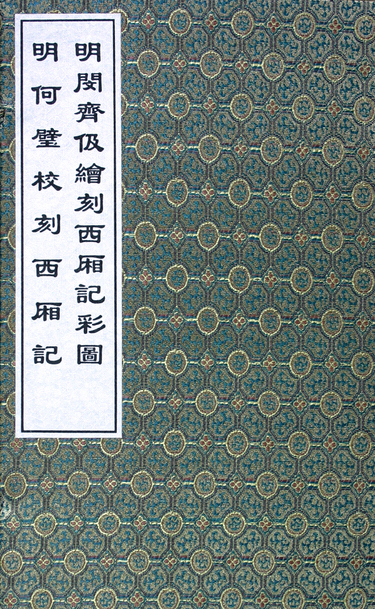 明閔齊伋繪刻西厢記彩圖
明何璧校刻西厢記